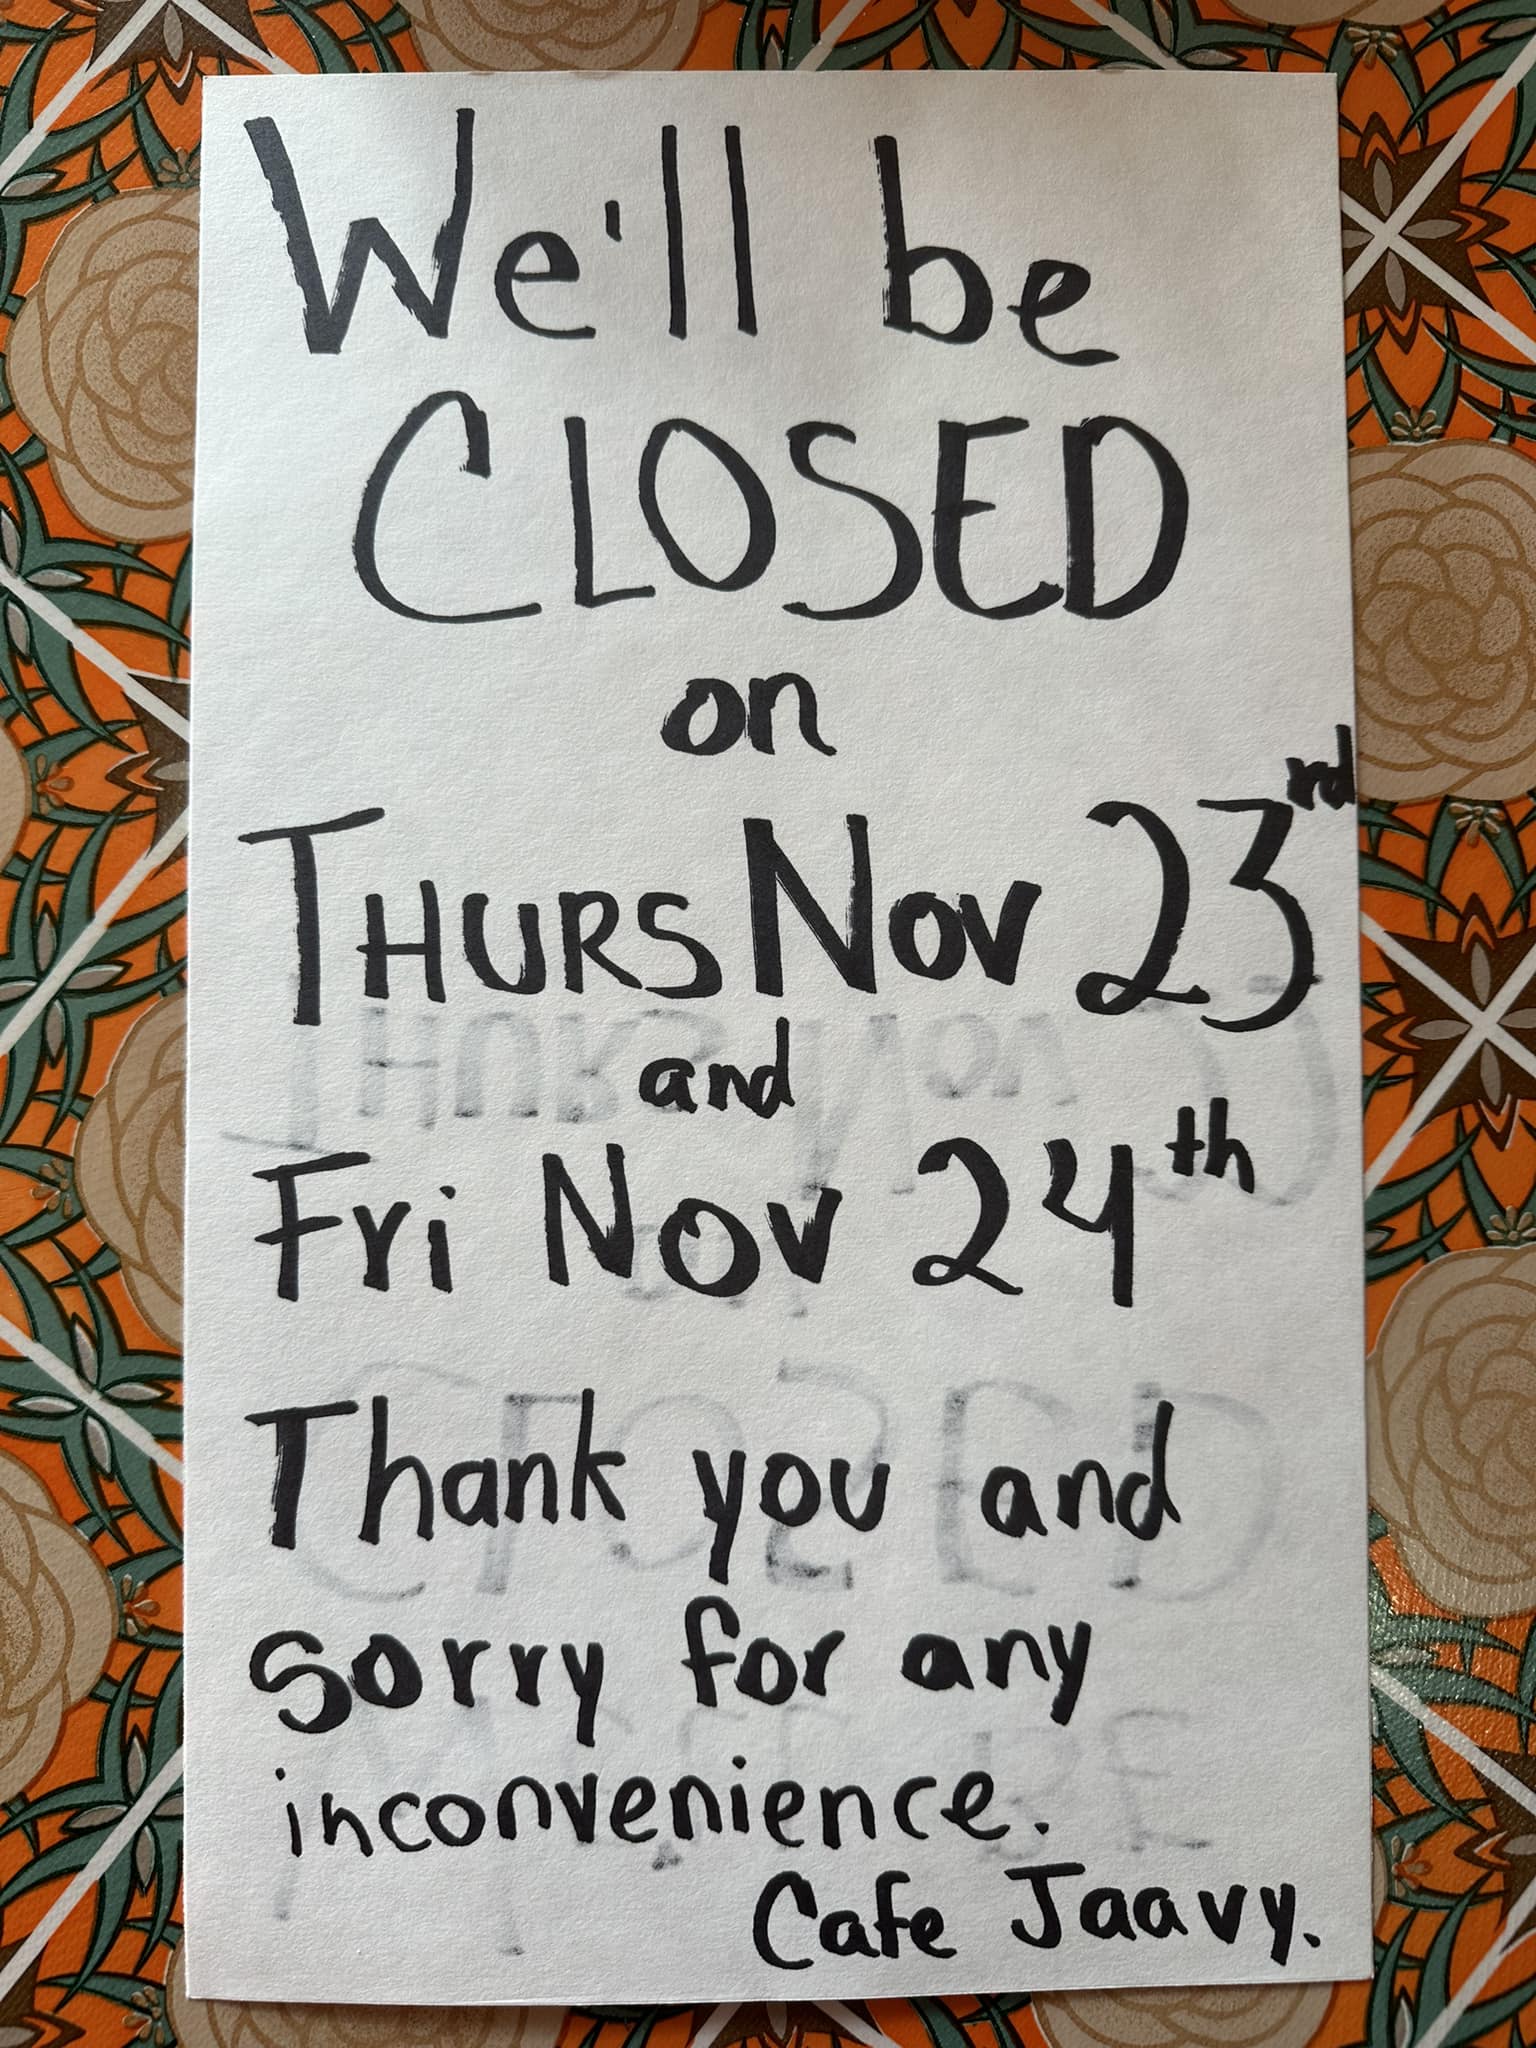 We'll be
CLOSED
on
THURS Nov 23rd
and
Fri Nov 24th
Thank you and
sorry for any
inconvenience.
Cafe Jaavy.